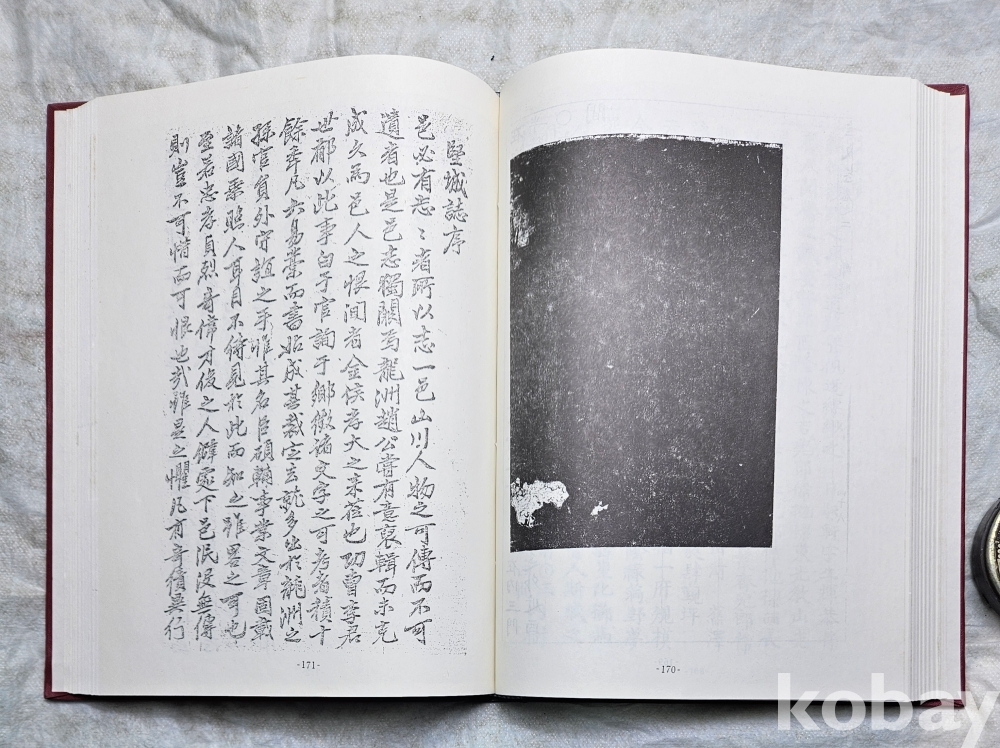 -170-
堅城誌序
邑必有志〻者所以志一邑山川人物之可傳而不可
遺者也是邑志獨闕焉龍洲趙公嘗有意裒輯而未克
成久爲邑人之恨間者金侯孝大之來莅也功曹李君
世郁以此事白于官詢于鄉徵諸文字之可考者積十
餘 凡六易藁而書始成其裁定去就多出於龍洲之
孫官員外守誼之手唯其名臣碩輔事業文章固載
諸國乘照人耳目不待見於此而知之雖畧之可也
至若忠孝貞烈奇偉才俊之人僻處下邑泯沒無傳
則豈不可惜而可恨也哉 是之懼凡有 積異行
-171-
kobay